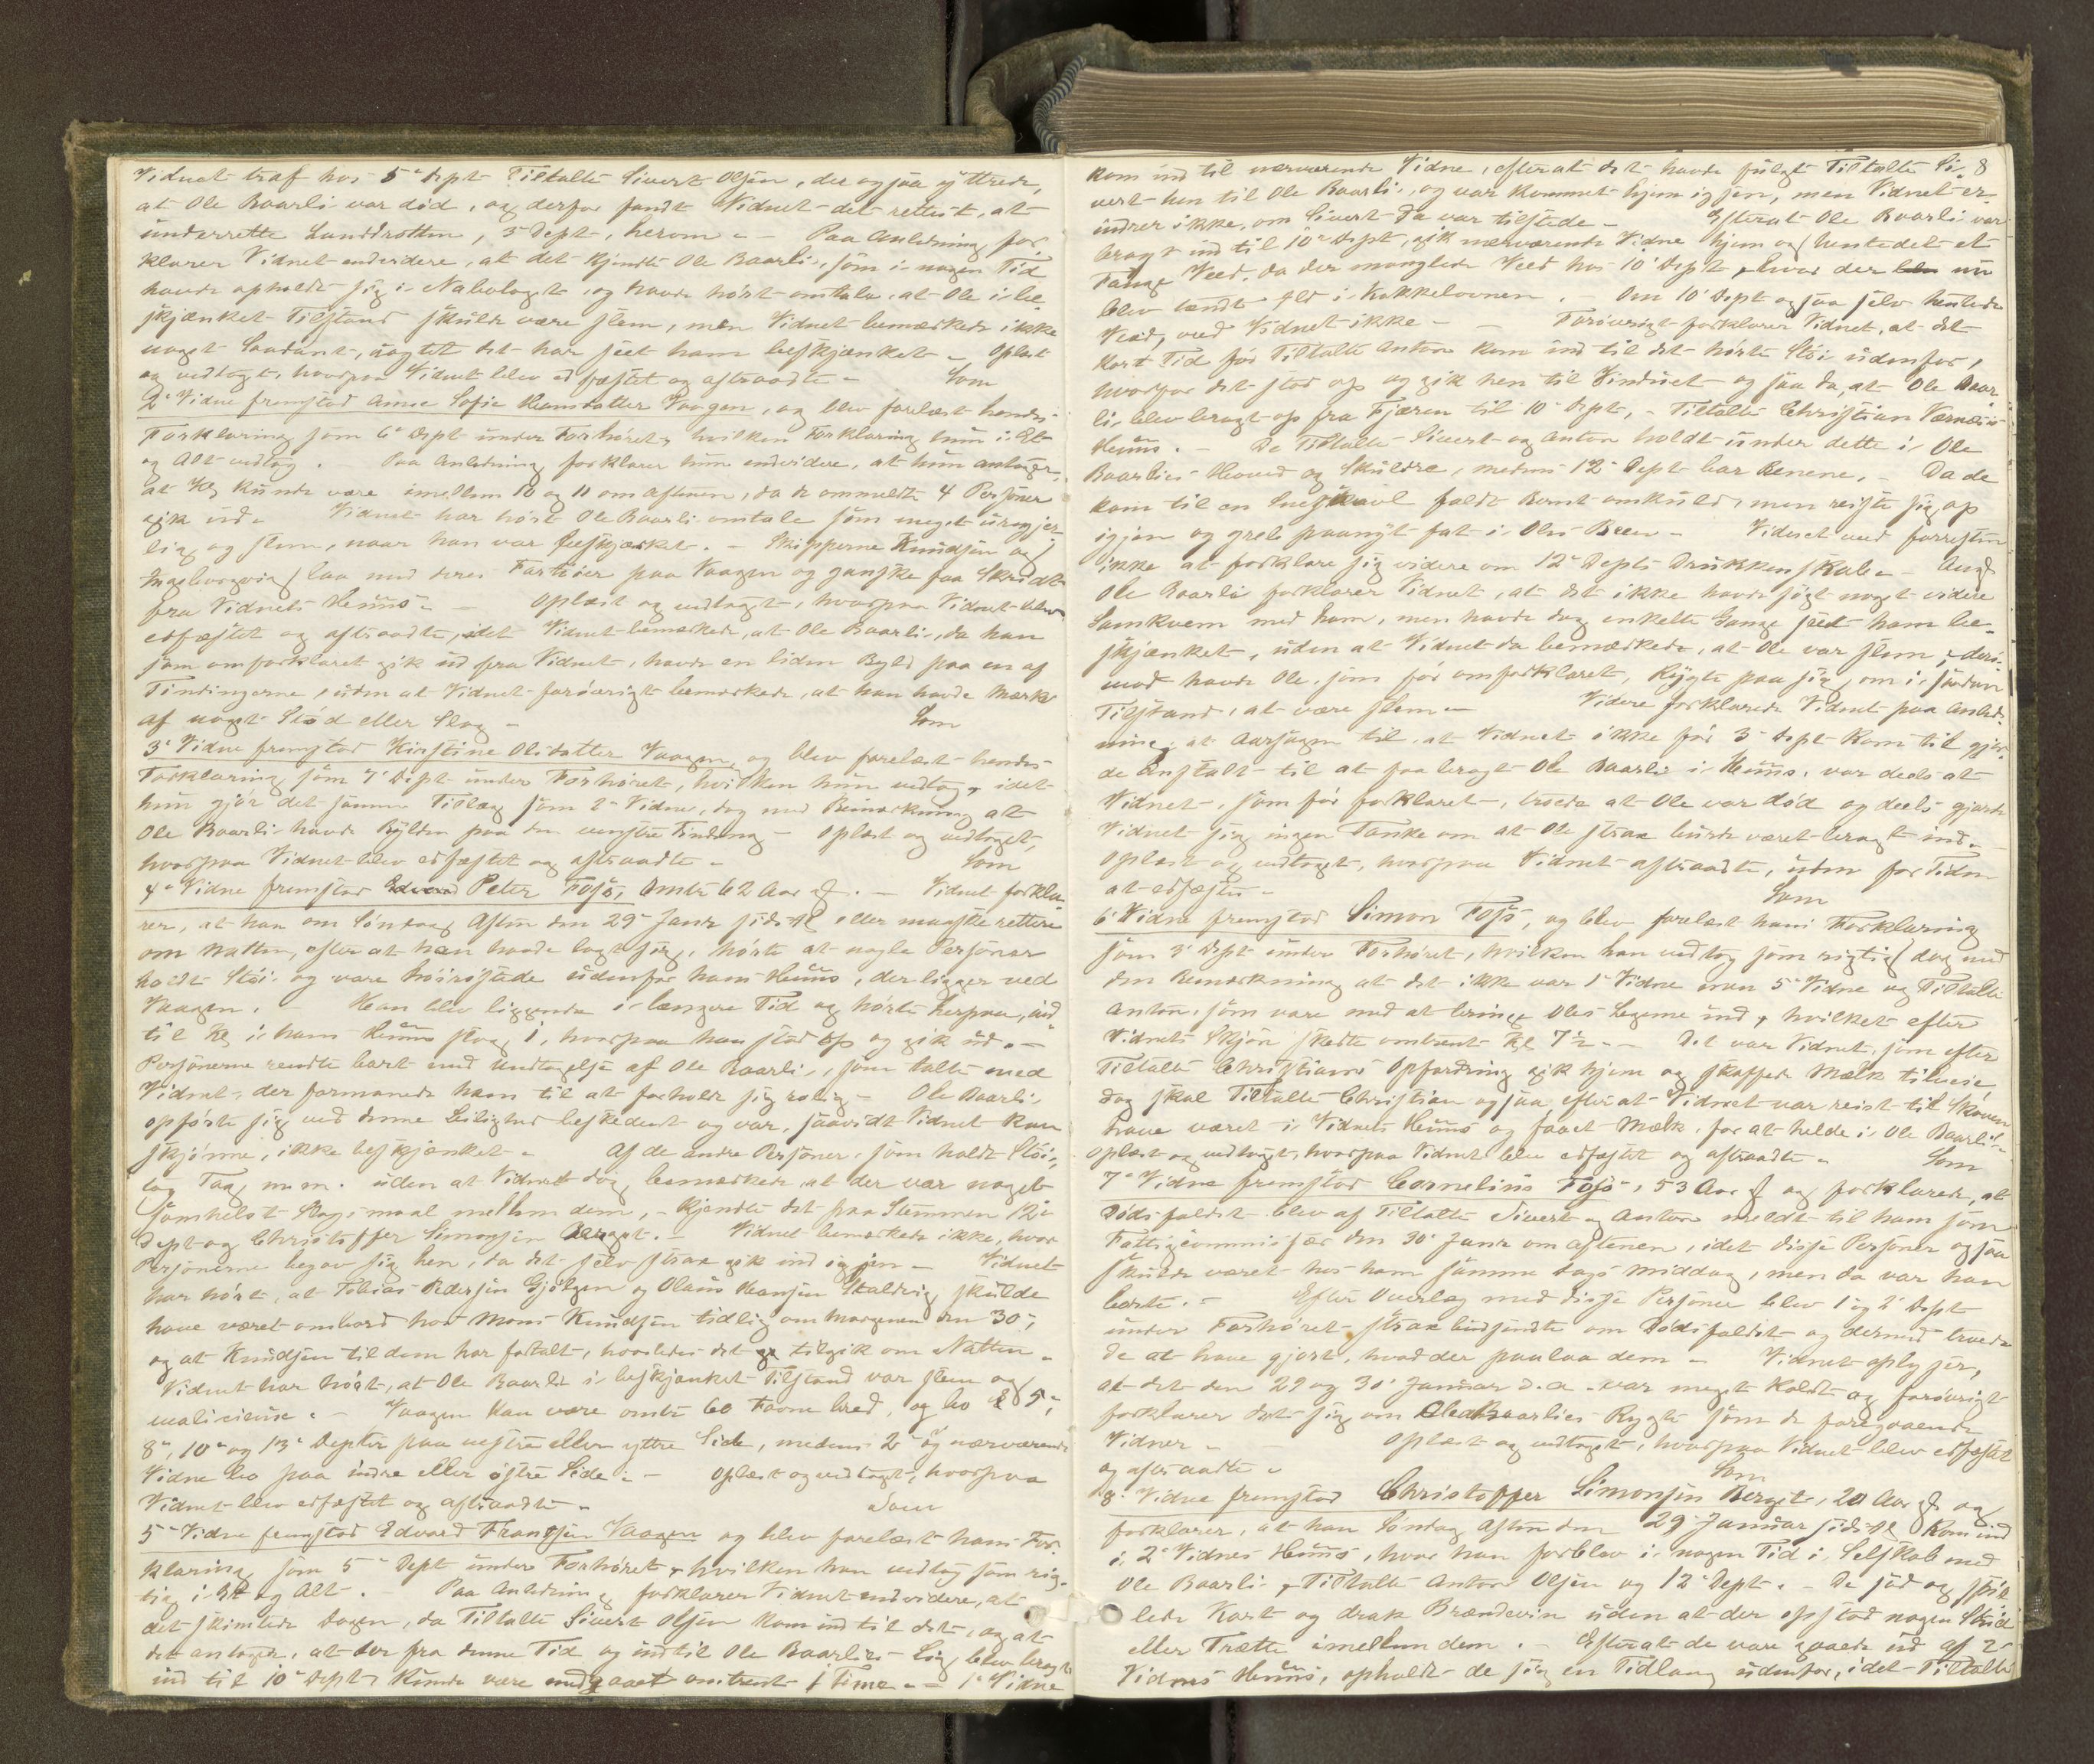 Vidnet traf hos 5' Dept Tiltalte Sivert Olsen, der ogsaa yttrede,
at Ole Baarli var død, og derfor fandt Vidnet det rettest, at
underrette Landdrotten, 3' Dept, herom. - Paa Anledning for-
klarer Vidnet endvidere, at det kjendte Ole Baarli, som i nogen Tid
havde opholdt sig i Nabolaget, og havde hørt omtale, at Ole i be-
skjænket Tilstand skulde være slem, men Vidnet bemærkede ikke
noget Saadant, uagtet det har seet ham beskjænket. - Oplæst
og vedtaget, hvorpaa Vidnet blev edfæstet og aftraadte. - Som
2' Vidne fremstod Anne Sofie Hansdatter Vaagen, og blev forelæst hendes
Forklaring som 6' Dept under Forhøret, hvilken Forklaring hun i Et
og Alt vedtog. - Paa Anledning forklarer hun endvidere, at hun antager,
at Kl kunde være imellem 10 og 11 om Aftenen, da de ommeldte 4 Personer
gik ud. Vidnet har hørt Ole Baarli omtale som meget uregjer-
lig og slem, naar han var beskjænket. - Skipperne Knudsen og
Ingeborgvig laa med deres Fartøier paa Vaagen og ganske faa Skridt
fra Vidnets Huus. - Oplæst og vedtaget, hvorpaa Vidnet blev
edfæstet og aftraadte, idet Vidnet bemærkede, at Ole Baarli, da han
som omforklaret gik ud fra Vidnet, havde en liden Byld paa en af
Tindingerne, uden at Vidnet forøvrigt bemærkede, at han havde Mærke
af noget Stød eller Slag. - Som
3' Vidne fremstod Kirstine Olsdatter Vaagen, og blev forelæst hendes
Forklaring som 7' Dept under Forhøret, hvilken hun vedtog, idet
hun gjør det samme Tillæg som 2' Vidne, dog med Bemærkning at
Ole Baarli havde Bylden paa den venstre Tinding - Oplæst og vedtaget,
hvorpaa Vidnet blev edfæstet og aftraadte - Som
4' Vidne fremstod Peter Foss, omtr 62 Aar gl. - Vidnet forkla-
rer, at han om Søndag Aften den 29' Janr sidstl eller maaske rettere
om Natten, efter at han havde lagt sig, hørte at nogle Personer
holdt Støi og vare høirøstede udenfor hans Huus, der ligger ved
Vaagen. - Han blev liggende i længere Tid og hørte herpaa, ind-
til Kl i hans Huus slog 1, hvorpaa han stod op og gik ud. -
Personerne rendte bort med Undtagelse af Ole Baarli, som talte med
Vidnet, der formanede ham til at forholde sig rolig - Ole Baarli
opførte sig ved denne Leilighed beskedent og var, saavidt Vidnet kan
skjønne, ikke beskjænket. Af de andre Personer, som holdt Støi,
tog Tag m. m. uden at Vidnet dog bemærkede, at der var noget
somhelst Slagsmaal mellem dem, - kjendte det paa Stemmen 12'
Dept og Christoffer Simonsen Berget. - Vidnet bemærkede ikke, hvor
Personerne begav sig hen, da det selv strax gik ind igjen - Vidnet
har hørt, at Tobias Pedersen Gjølgen og Olaus Hansen Skaldvig skulde
have været ombord hos Mons Knudsen tidlig om Morgenen den 30',
og at Knudsen til dem har fortalt, hvorledes det tilgik om Natten.
Vidnet har hørt, at Ole Baarli i beskjænket Tilstand var slem og
malicieuse. - Vaagen kan være omtr 60 Favne bred, og bo 5',
8', 10' og 13' Depter paa vestre eller yttre Side, medens 2' og nærværende
Vidne bo paa indre eller østre Side. - Oplæst og vedtaget, hvorpaa
Vidnet blev edfæstet og aftraadte - Som
5' Vidne fremstod Edvard Frantsen Vaagen og blev forelæst hans For-
klaring som 5' Dept under Forhøret, hvilken han vedtog som rig-
tig i Et og Alt. - Paa Anledning forklarer Vidnet endvidere, at
det skimtede Dagen, da Tiltalte Sivert Olsen kom ind til det, og at
det antager, at der fra denne Tid og indtil Ole Baarlis Lig blev bragt
ind til 10' Dept, kunde være medgaaet omtrent 1 Time. - 1' Vidne
8
kom ind til nærværende Vidne, efterat det havde fulgt Tiltalte Si-
vert hen til Ole Baarli, og var kommet hjem igjen, men Vidnet er-
indrer ikke, om Sivert da var tilstede - Efterat Ole Baarli var
bragt ind til 10' Dept, gik nærværende Vidne hjem og hentedet et
Fange Veed, da der manglede Veed hos 10' Dept, hvor der nu
blev tændt Ild i Kakkelovnen. - Om 10' Dept ogsaa selv hentede
Veed, veed Vidnet ikke - Forøvrigt forklarer Vidnet, at det
kort Tid før Tiltalte Anton kom ind til det hørte Støi udenfor,
hvorfor det stod op og gik hen til Vinduet og saa da, at Ole Baar-
li blev bragt op fra Fjæren til 10' Dept, - Tiltalte Christian
Huus. - De Tiltalte Sivert og Anton holdt under dette i Ole
Baarlies Hoved og Skuldre, medens 12' Dept bar Benene, - Da de
kom til en Sneskavl faldt Bernt omkuld, men reiste sig op
igjen og greb paanyt fat i Oles Been - Vidnet veed forresten
ikke at forklare sig videre om 12' Depts Drukkenskab. - Angd
Ole Baarli forklarer Vidnet, at det ikke havde havt noget videre
Samkvem med ham, men havde dog enkelte Gange seet ham be-
skjænket, uden at Vidnet da bemærkede, at Ole var slem, deri-
mod havde Ole, som før omforklaret, Rygte paa sig, om i saadan
Tilstand, at være slem - Videre forklarede Vidnet paa Anled-
ning, at Aarsagen til, at Vidnet ikke før 3' Dept kom til gjor-
de Anstalt til at faa bragt Ole Baarli i Huus, var deels at
Vidnet, som før forklaret, troede at Ole var død og deels gjorde
Vidnet sig ingen Tanke om at Ole strax burde været bragt ind. -
Oplæst og vedtaget, hvorpaa Vidnet aftraadte, uden for Tiden
at edfæstes - Som
6' Vidne fremstod Simon Foss, og blev forelæst hans Forklaring
som 3' Dept under Forhøret, hvilken han vedtog som rigtig dog med
den Bemærkning at det ikke var 1' Vidne men 5' Vidne og Tiltalte
Anton, som vare med at bringe Oles Legeme ind, hvilket efter
Vidnets Skjøn skedte omtrent Kl 7½. - Det var Vidnet, som efter
Tiltalte Christians Opfordring gik hjem og skaffede Mælk tilveie
dog skal Tiltalte Christian ogsaa efterat Vidnet var reist til Skoven
have været i Vidnets Huus og faaet Mælk, for at helde i Ole Baarli -
Oplæst og vedtaget, hvorpaa Vidnet blev edfæstet og aftraadte - Som
7' Vidne fremstod Cornelius Foss, 53 Aar gl og forklarede, at
Dødsfaldet blev af Tiltalte Sivert og Anton meldt til ham som
Fattigcommissær den 30' Janr om Aftenen, idet disse Personer ogsaa
skulde været hos ham samme Dags Middag, men da var han
borte. - Efter Overlæg med disse Personer blev 1' og 2' Dept
under Forhøret strax budsendte om Dødsfaldet og dermed troede
de at have gjort, hvad der paalaa dem - Vidnet oplyser,
at det den 29 og 30' Januar d. a. var meget koldt og forøvrigt
forklarer det sig om Ole Baarlies Rygte som de foregaaende
Vidner - Oplæst og vedtaget, hvorpaa Vidnet blev edfæstet
og aftraadte - Som
8' Vidne fremstod Christoffer Simonsen Berget, 20 Aar gl og
forklarer, at han Søndag Aften den 29' Januar sidstl kom ind
i 2' Vidnes Huus, hvor han forblev i nogen Tid i Selskab med
Ole Baarli, Tiltalte Anton Olsen og 12' Dept. - De sad og spil-
lede Kort og drak Brændeviin uden at der opstod nogen Strid
eller Trætte imellem dem. - Efterat de vare gaaede ud af 2'
Vidnes Huus, opholdt de sig en Tidlang udenfor, idet Tiltalte